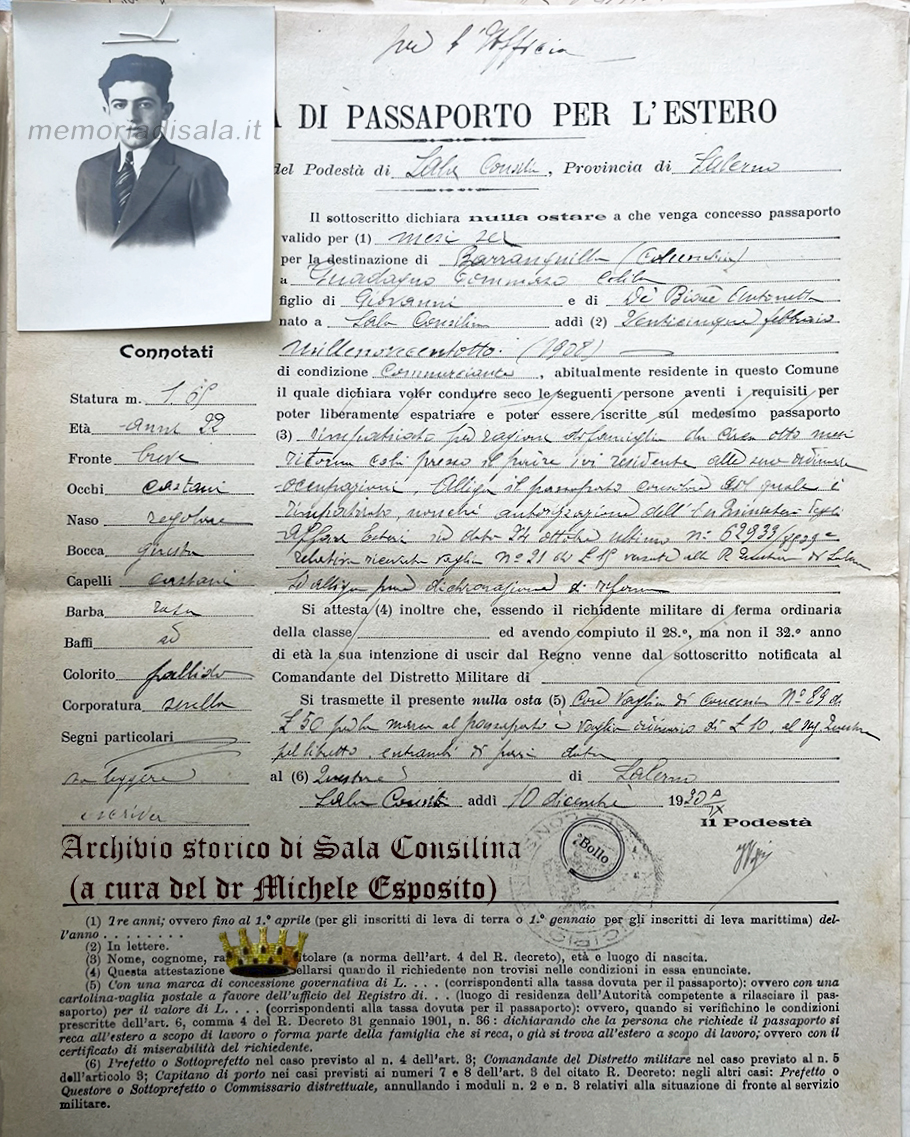 per l'Ufficio
memoriadisala.it
A DI PASSAPORTO PER L'ESTERO
del Podestà di Sala Consilina, Provincia di Salerno
Il sottoscritto dichiara nulla ostare a che venga concesso passaporto
valido per (1) mesi sei
per la destinazione di Barranquilla (Columbia)
a Guadagno Tommaso
figlio di Giovanni e di De Biase Antonetta
nato a Sala Consilina addì (2) Venticinque febbraio
millenovecentotto (1908)
di condizione Commerciante, abitualmente residente in questo Comune
il quale dichiara voler condurre seco le seguenti persone aventi i requisiti per
poter liberamente espatriare e poter essere iscritte sul medesimo passaporto
(3) rimpatriato per ragioni di famiglia da circa otto mesi
ritorna colà presso il padre ivi residente alle sue ordinarie
occupazioni. Alliga il passaporto consolare col quale è
rimpatriato, nonchè autorizzazione dell' On Ministero degli
Affari Esteri in data 24 ottobre ultimo n° 62933
relativa ricevuta vaglia n° 21 di £ 15 versate alla R Questura di Salerno
Si alliga pure dichiarazione di
Connotati
Statura m. 1.65
Età anni 22
Fronte breve
Occhi castani
Naso regolare
Bocca giusta
Capelli castani
Barba rasa
Baffi sì
Colorito pallido
Corporatura snella
Segni particolari
sa leggere
e scrivere
Si attesta (4) inoltre che, essendo il richidente militare di ferma ordinaria
della classe ed avendo compiuto il 28.º, ma non il 32.º anno
di età la sua intenzione di uscir dal Regno venne dal sottoscritto notificata al
Comandante del Distretto Militare di
Si trasmette il presente nulla osta (5) Con vaglia di concess N° 89 di
£ 50 per la marca al passaporto e vaglia ordinario di £ 10, al Sig Questore
pel libretto, entrambi di pari data
al (6) Questore di Salerno
Sala Consilina addì 10 dicembre 1930 IX
Il Podestà
Bollo
Archivio storico di Sala Consilina
(a cura del dr Michele Esposito)
(1) Tre anni; ovvero fino al 1.º aprile (per gli inscritti di leva di terra o 1.º gennaio per gli inscritti di leva marittima) del-
l'anno . . . . . . . .
(2) In lettere.
(3) Nome, cognome, ra tolare (a norma dell'art. 4 del R. decreto), età e luogo di nascita.
(4) Questa attestazione ellarsi quando il richiedente non trovisi nelle condizioni in essa enunciate.
(5) Con una marca di concessione governativa di L. . . . (corrispondenti alla tassa dovuta per il passaporto): ovvero con una
cartolina-vaglia postale a favore dell'ufficio del Registro di. . . (luogo di residenza dell'Autorità competente a rilasciare il pas-
saporto) per il valore di L. . . . (corrispondenti alla tassa dovuta per il passaporto): ovvero, quando si verifichino le condizioni
prescritte dell'art. 6, comma 4 del R. Decreto 31 gennaio 1901, n. 36 : dichiarando che la persona che richiede il passaporto si
reca all'estero a scopo di lavoro o forma parte della famiglia che si reca, o già si trova all'estero a scopo di lavoro; ovvero con il
certificato di miserabilità del richiedente.
(6) Prefetto o Sottoprefetto nel caso previsto al n. 4 dell'art. 3; Comandante del Distretto militare nel caso previsto al n. 5
dell'articolo 3; Capitano di porto nei casi previsti ai numeri 7 e 8 dell'art. 3 del citato R. Decreto: negli altri casi: Prefetto o
Questore o Sottoprefetto o Commissario distrettuale, annullando i moduli n. 2 e n. 3 relativi alla situazione di fronte al servizio
militare.